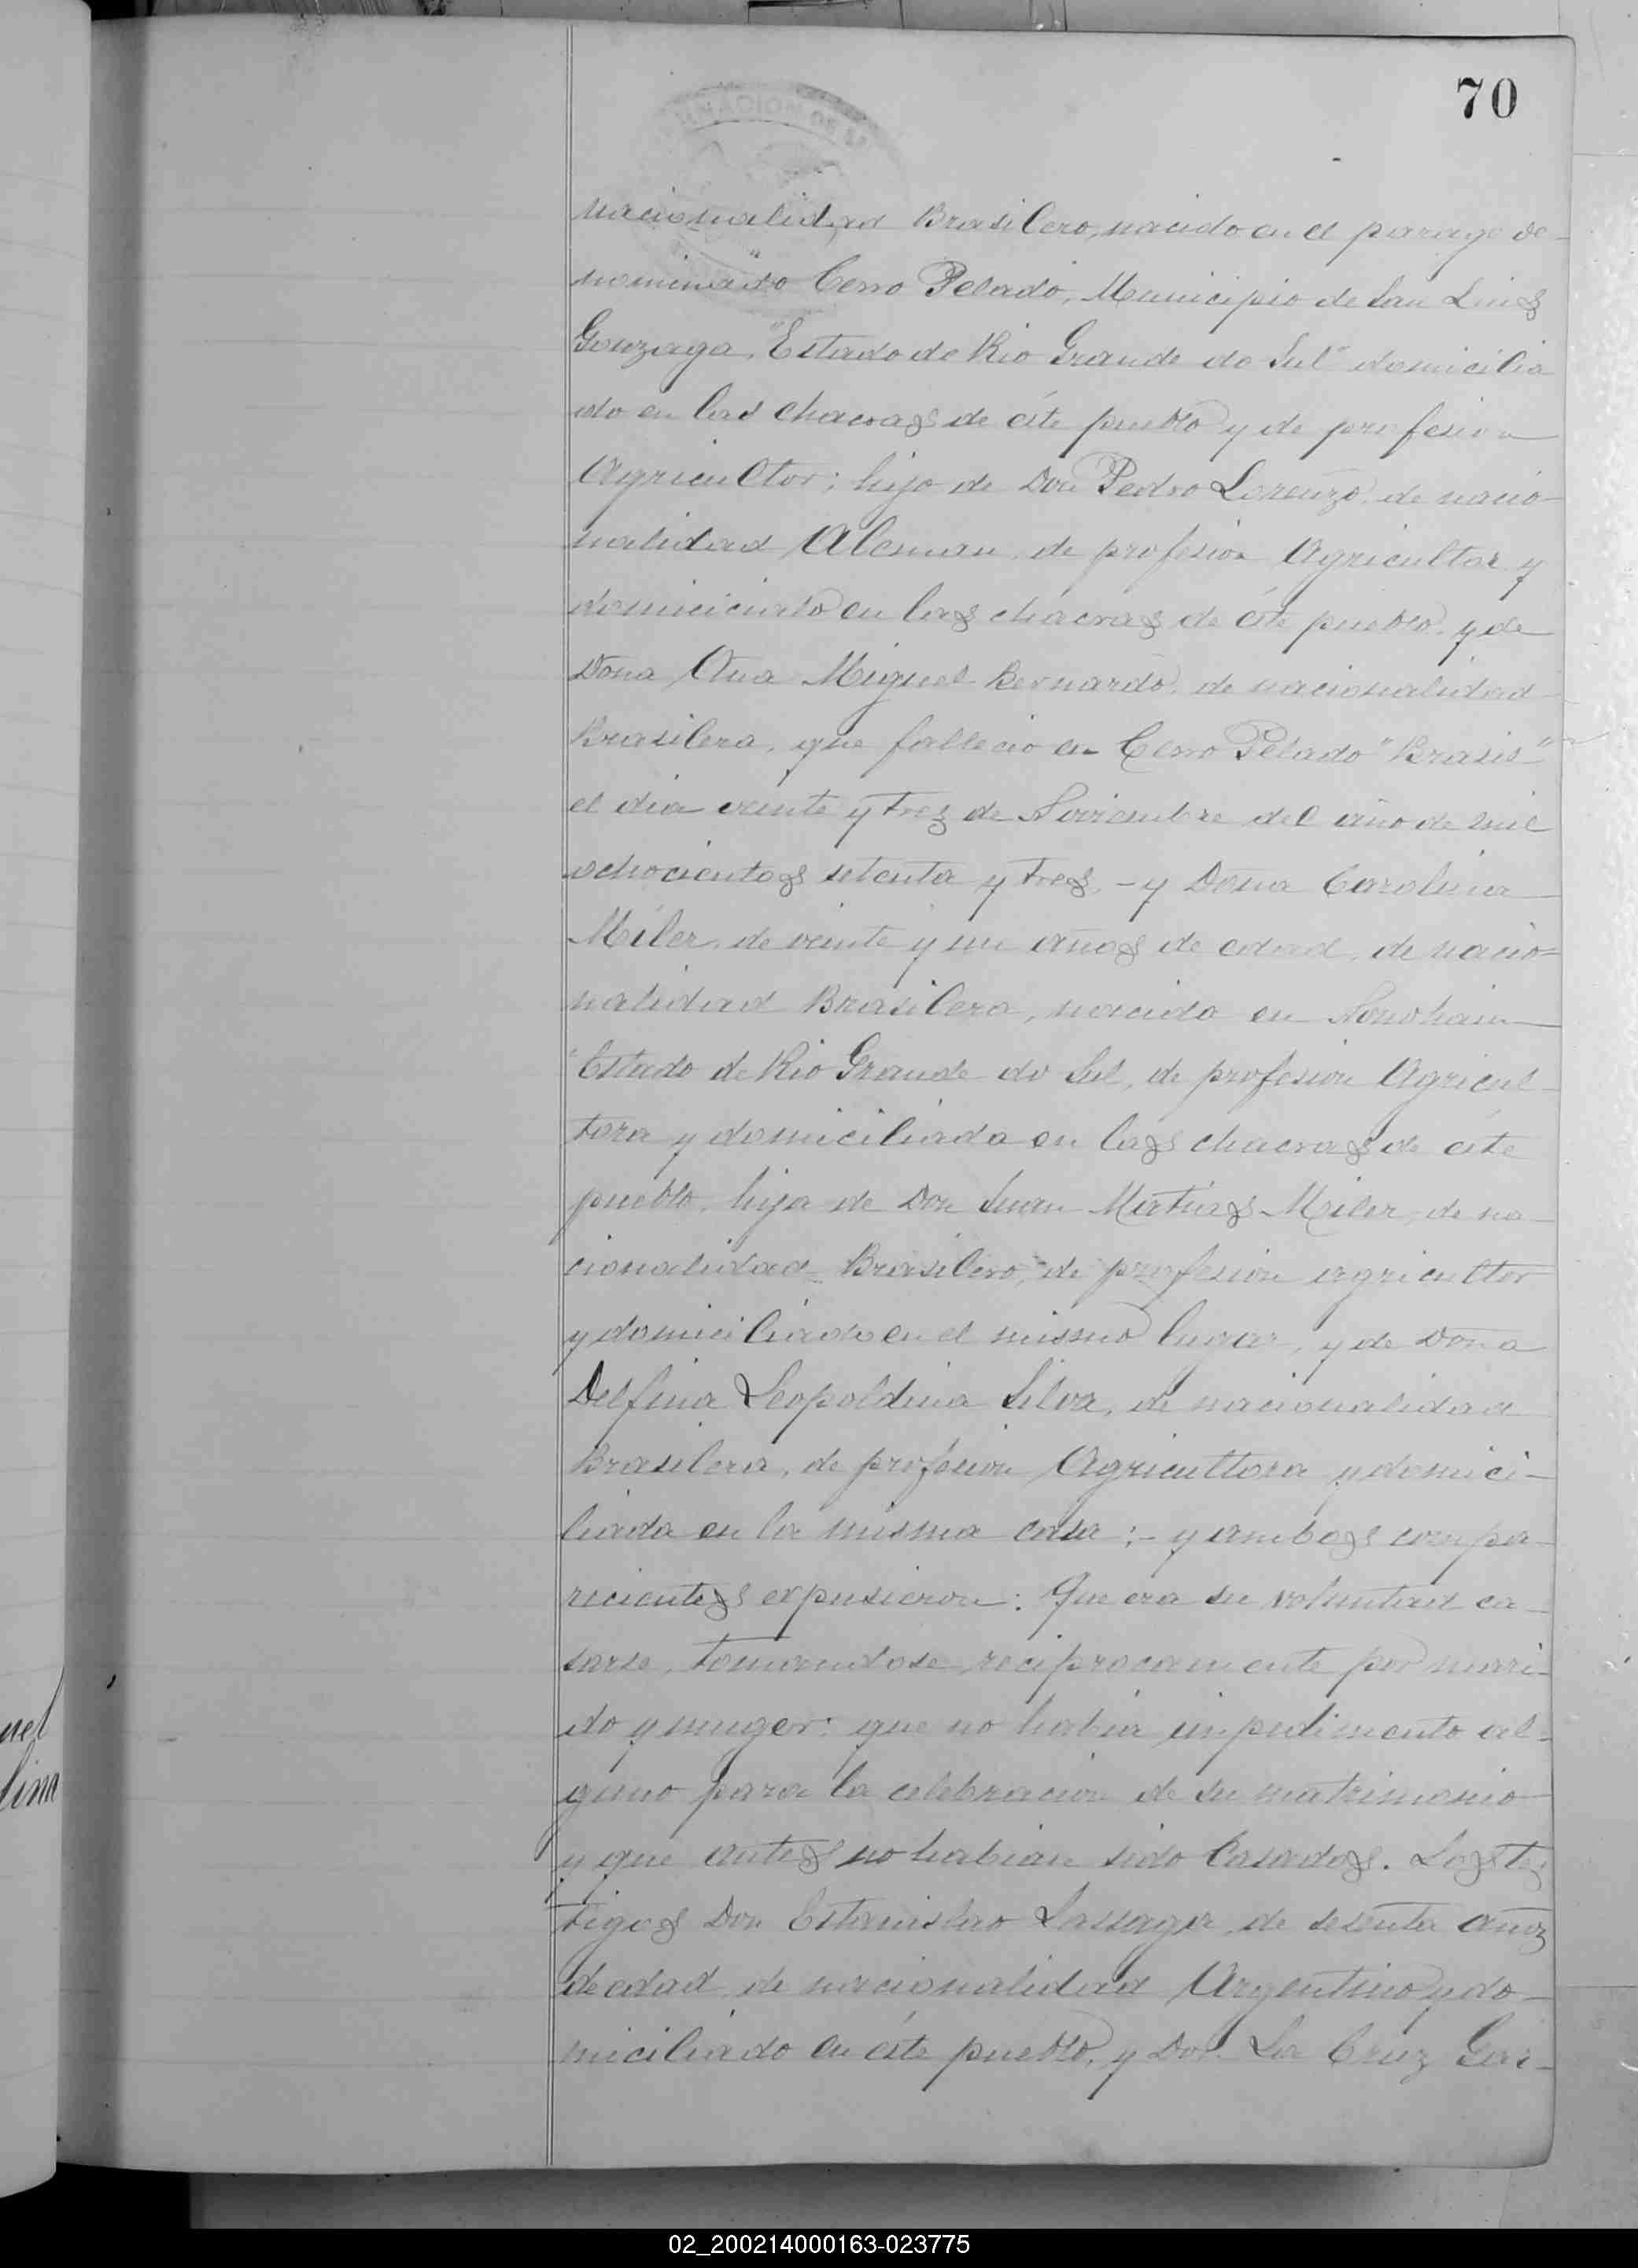 70
nacionalidad Brasilero, nacido en el parage de-
nominado Cerro Pelado, Municipio de San Luis
Gonzaga, "Estado de Rio Grande do Sul" domicilia
do en las chacras de éste pueblo y de profesion
Agricultor; hijo de Don Pedro Lorenzo, de nacio-
nalidad Aleman, de profesion Agricultor y
en las chacras de éste pueblo, y de
Dona Ana Miguel Bernardo, de nacionalidad
Brasilera, que fallecio en Cerro Pelado "Brasil"
el dia veinte y tres de Noviembre del año de mil
ochocientos setenta y tres, - y Dona Carolina
Miler, de veinte y un años de edad, de nacio-
nalidad Brasilera, nacida en
"Estado de Rio Grande do Sul, de profesion Agricul-
tora y domiciliada en las chacras de éste
pueblo, hija de Don Juan Matias Miler, de na-
cionalidad Brasilero, de profesion agricultor
y domiciliado en el mismo lugar, y de Dona
Delfina Leopoldina Silva, de nacionalidad
Brasilera, de profesion Agricultora y domici-
liada en la misma casa; - y ambos compa-
recientes expusieron: Que era su voluntad ca-
sarse, tomandose reciprocamente por mari-
do y muger: que no habia impedimento al-
guno para la celebracion de su matrimonio
y que antes no habian sido Casados. Los tes
tigos Don Estanislao Lassaga, de sesenta años
de edad, de nacionalidad Argentino y do-
miciliado en éste pueblo, y Don La Cruz Gar-
nel
lina
02_200214000163-023775